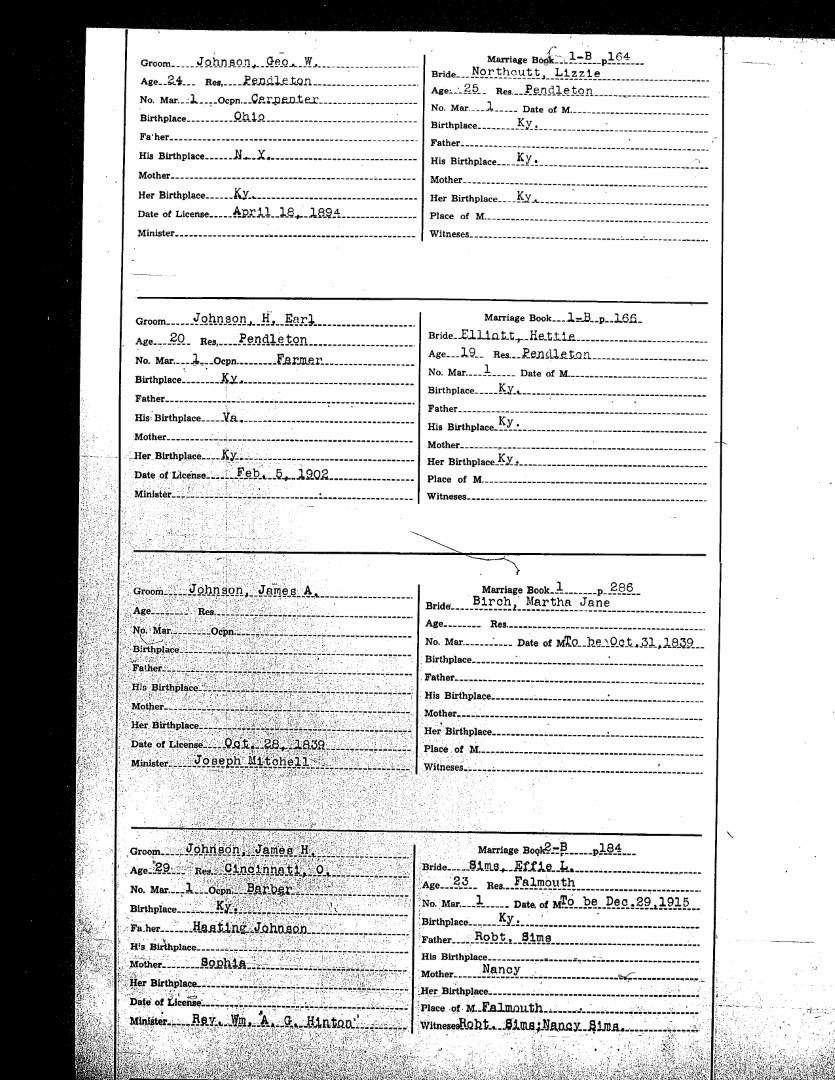 Groom Johnson, Geo. W.
Age 24 Res. Pendleton
No. Mar. 1 Ocpn. Carpenter
Birthplace Ohio
Father
His Birthplace N. Y.
Mother
Her Birthplace Ky.
Date of License April 18, 1894
Minister
Marriage Book 1-B p164
Bride Northcutt, Lizzie
Age 25 Res. Pendleton
No. Mar. 1 Date of M.
Birthplace Ky.
Father
His Birthplace Ky.
Mother
Her Birthplace Ky.
Place of M.
Witneses
Groom Johnson, H. Earl
Age 20 Res. Pendleton
No. Mar. 1 Ocpn. Farmer
Birthplace Ky.
Father
His Birthplace Va.
Mother
Her Birthplace Ky.
Date of License Feb. 5, 1902
Minister
Marriage Book 1-B p. 166
Bride Elliott, Hettie
Age 19 Res. Pendleton
No. Mar. 1 Date of M.
Birthplace Ky.
Father
His Birthplace Ky.
Mother
Her Birthplace Ky.
Place of M.
Witneses
Groom Johnson, James A.
Age Res.
No. Mar. Ocpn.
Birthplace
Father
His Birthplace
Mother
Her Birthplace
Date of License Oct. 28, 1839
Minister Joseph Mitchell
Marriage Book 1 p. 286
Bride Birch, Martha Jane
Age Res.
No. Mar. Date of M To be Oct.31,1839
Birthplace
Father
His Birthplace
Mother
Her Birthplace
Place of M.
Witneses
Groom Johnson, James H.
Age 29 Res. Cincinnati, O.
No. Mar. 1 Ocpn. Barber
Birthplace Ky.
Father Hasting Johnson
His Birthplace
Mother Sophia
Her Birthplace
Date of License
Minister Rev. Wm. A. G. Hinton
Marriage Book 2-B p184
Bride Sims, Effie L.
Age 23 Res. Falmouth
No. Mar. 1 Date of M To be Dec.29,1915
Birthplace Ky.
Father Robt. Sims
His Birthplace
Mother Nancy
Her Birthplace
Place of M. Falmouth
Witneses Robt. Sims;Nancy Sims.